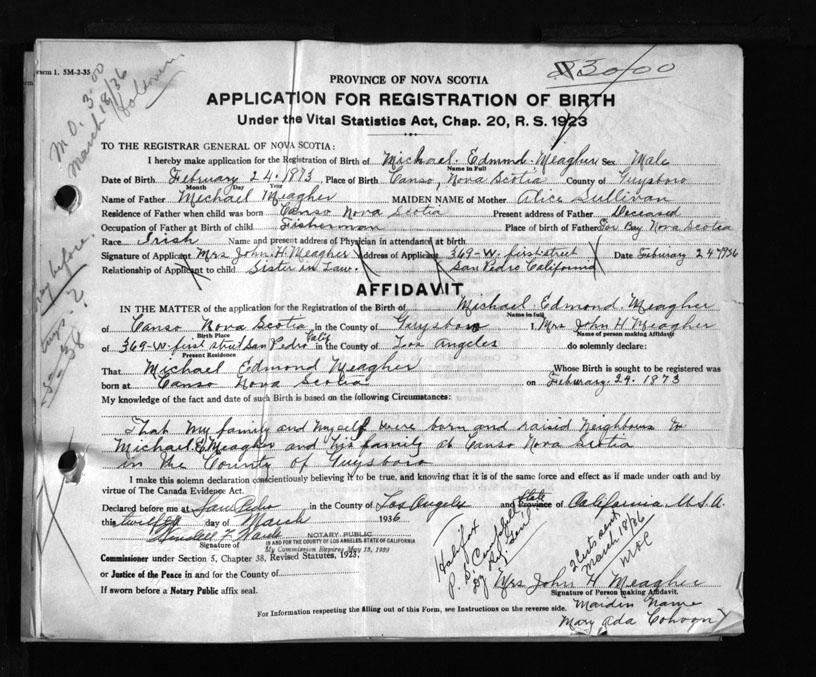 Form 1. 5M-2-35
M.O. 3.00
March 18/36
3000
PROVINCE OF NOVA SCOTIA
APPLICATION FOR REGISTRATION OF BIRTH
Under the Vital Statistics Act, Chap. 20, R. S. 1923
TO THE REGISTRAR GENERAL OF NOVA SCOTIA:
I hereby make application for the Registration of Birth of Michael. Edmnd. Meagher Sex Male
Name in Full
Date of Birth February 24. 1873 Place of Birth Canso, Nova Scotia County of Guysboro
Month Day Year
Name of Father Michael Meagher MAIDEN NAME of Mother Alice Sullivan
Residence of Father when child was born Canso Nova Scotia Present address of Father Deceased
Occupation of Father at Birth of Child Fisherman Place of birth of Father Bay Nova Scotia
Race Irish Name and present address of Physician in attendance at birth
Signature of Applicant Mrs John. H. Meagher Address of Applicant 369-W. first street Date Feburay 24 1936
Relationship of Applicant to child Sister in Law. San Pedro California
AFFIDAVIT
IN THE MATTER of the application for the Registration of the Birth of Michael Edmond Meagher
Name in full
of Canso Nova Scotia in the County of Guysboro I, Mrs John H Meagher
Birth Place Name of person making Affidavit
of 369-W. first street San Pedro Calif in the County of Los Angeles do solemnly declare:
Present Residence
That Michael Edmond Meagher Whose Birth is sought to be registered was
born at Canso Nova Scotia on Feburary. 24. 1873
My knowledge of the fact and date of such Birth is based on the following Circumstances:
That my family and myself were born and raised Neighbours to
Michael E Meagher and his family at Canso Nova Scotia
in the County of Guysboro
I make this solemn declaration conscientiously believing it to be true, and knowing that it is of the same force and effect as if made under oath and by
virtue of The Canada Evidence Act.
Declared before me at San Pedro in the County of Los Angeles and State Province of California U.S.A.
this twelfth day of March 1936
Wendell F.
Signature of NOTARY PUBLIC
IN AND FOR THE COUNTY OF LOS ANGELES, STATE OF CALIFORNIA
My Commission Expires May 18, 1939
Commissioner under Section 5, Chapter 38, Revised Statutes, 1923.
or Justice of the Peace in and for the County of
If sworn before a Notary Public affix seal.
Halifax
P. S. Campbell
Dy Reg. Gen'l
March 18/36
Mrs John H Meagher
Signature of Person making Affidavit.
Maiden Name
Mary Ada Cohoon
For Information respecting the filling out of this Form, see Instructions on the reverse side.